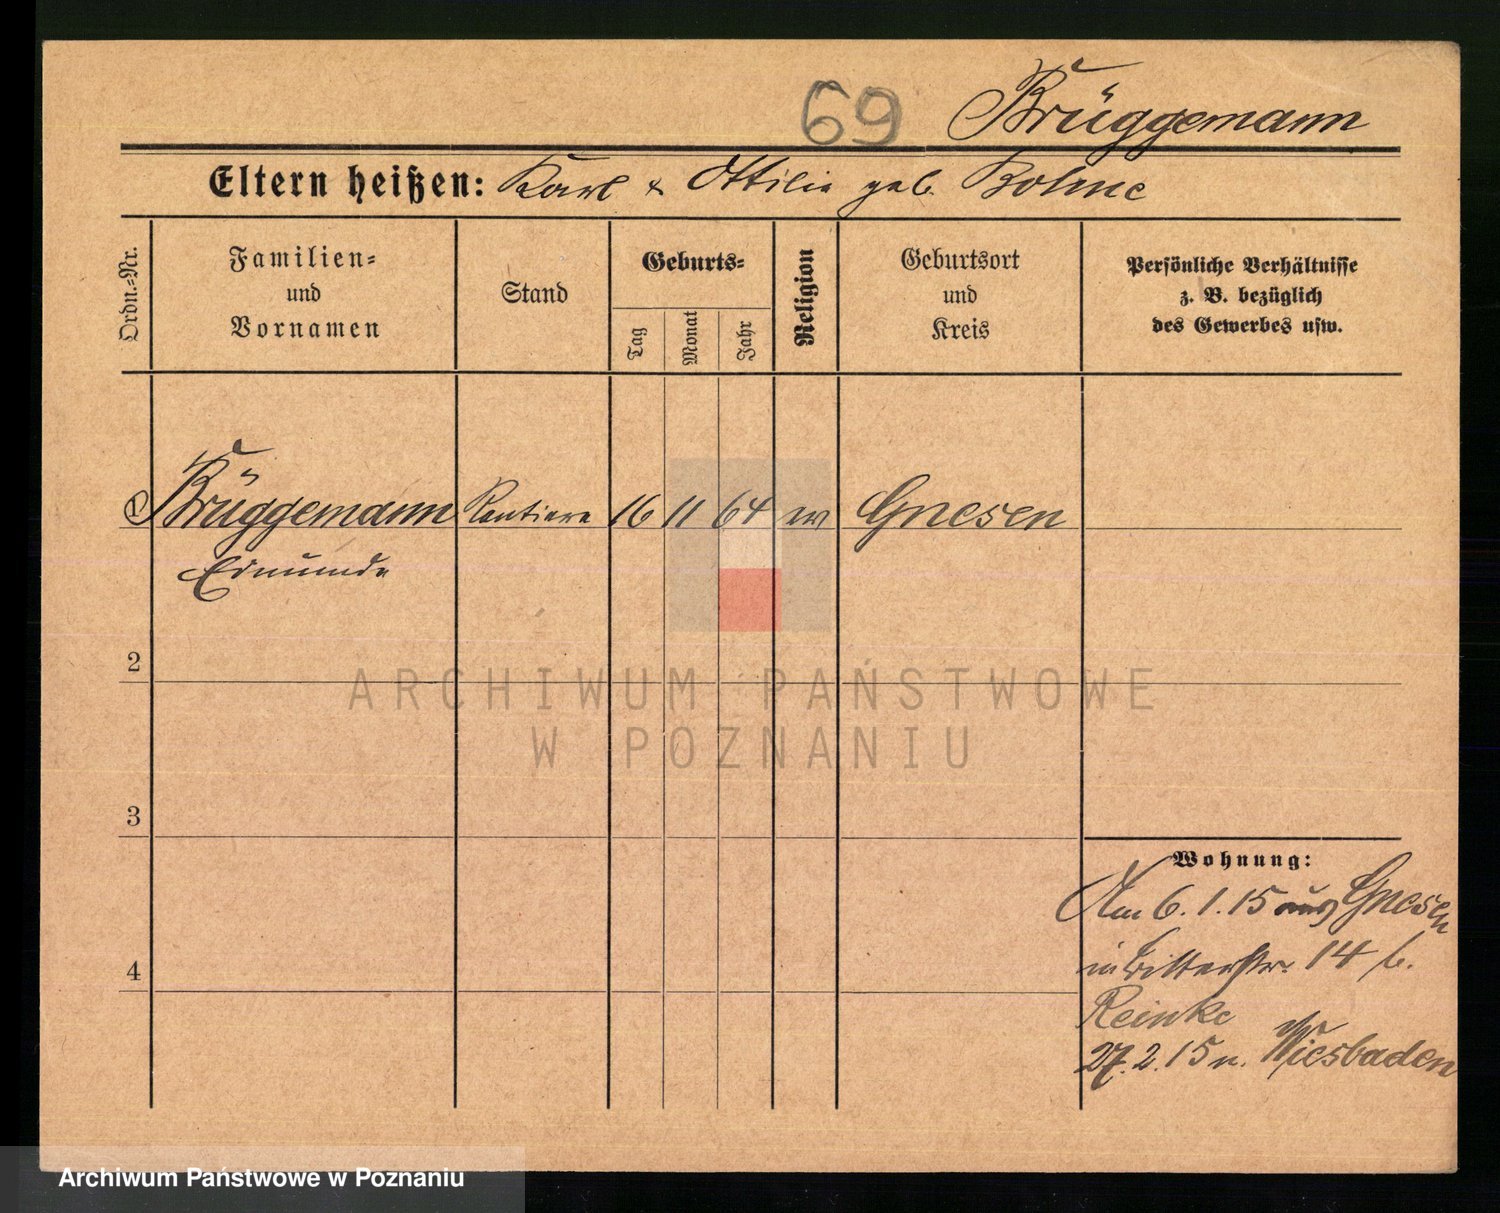 69 Brüggemann
Eltern heißen: Karl & Ottilie geb. Bohne
Ordn.-Nr.
Familien-
und
Vornamen
Stand
Geburts-
Tag
Monat
Jahr
Religion
Geburtsort
und
Kreis
Persönliche Verhältnisse
z. B. bezüglich
des Gewerbes usw.
Brüggemann Rentiere 16 11 64 ev Gnesen
Edmunde
2
ARCHIWUM PAŃSTWOWE
W POZNANIU
3
Wohnung:
Am 6. 1. 15 aus Gnesen
in Ritterstr. 14 b.
4
Reinke
27. 2. 15 n. Wiesbaden
Archiwum Państwowe w Poznaniu